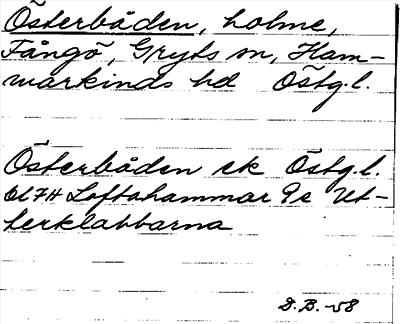 Österbåden, holme,
Fångö, Gryts sn, Ham-
markinds hd Östg.l.
Österbåden ek Östg.l.
bl 7H Loftahammar 9e Ut-
terklabbarna
D.B.-58